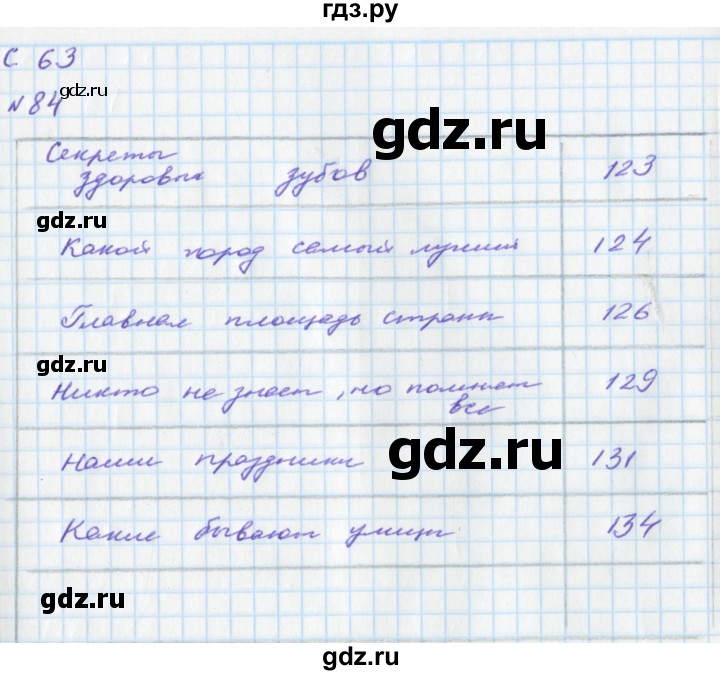 гдз.ру
С 63
gdz.ru
№ 84
gdz.ru
Секреты
здоровых зубов 123
gdz.ru
Какой город самый лучший 124
Главная площадь страны 126
gdz.ru
Никто не знает, но помнят 129
все
gdz.ru
Наши праздники 131
Какие бывают улицы 134
gdz.ru
gdz.ru